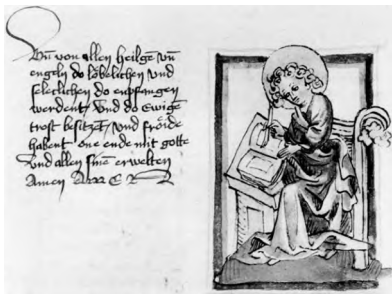 Vn̄ von allen heilgē vn̄
engeln do lobelichen vnd
seleclichen do enpfangen
werdent / vnd do ewigē
trost besitzet / vnd fröide
habent one ende mit gotte
vnd allen sinē erwelten
Amen